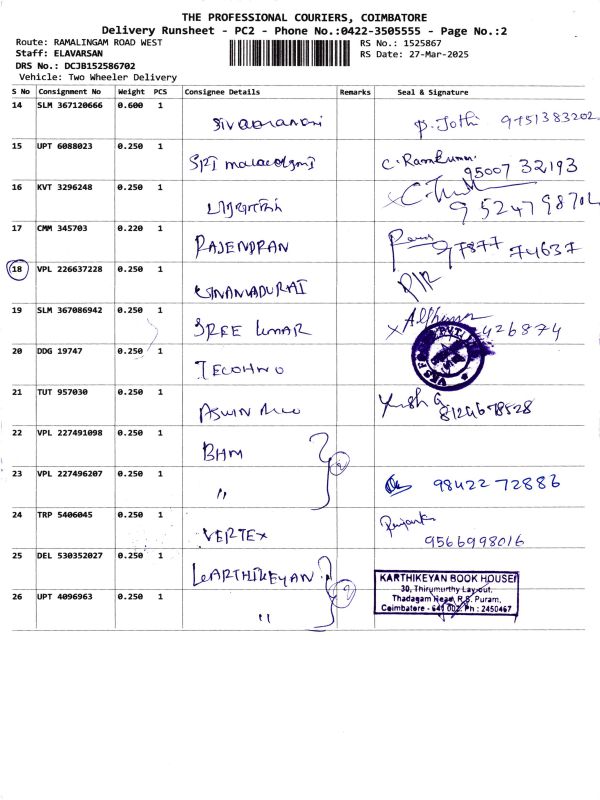 THE PROFESSIONAL COURIERS, COIMBATORE
Delivery Runsheet - PC2 - Phone No.:0422-3505555 - Page No.:2
Route: RAMALINGAM ROAD WEST
Staff: ELAVARSAN
DRS No.: DCJB152586702
Vehicle: Two Wheeler Delivery
RS No.: 1525867
RS Date: 27-Mar-2025
S No Consignment No Weight PCS Consignee Details Remarks Seal & Signature
14 SLM 367120666 0.600 1 P. Jothi 9751383202
15 UPT 6088023 0.250 1 C. Ramkumar 95007 32193
16 KVT 3296248 0.250 1
17 CMM 345703 0.220 1 RAJENDRAN 97877 74637
18 VPL 226637228 0.250 1
19 SLM 367086942 0.250 1 SREE KUMAR 426874
20 DDG 19747 0.250 1 TECOHNO
21 TUT 957030 0.250 1 ASWIN
22 VPL 227491098 0.250 1 BHM
23 VPL 227496207 0.250 1 " 2 98422 72886
24 TRP 5406045 0.250 1 VERTEX 9566998016
25 DEL 530352027 0.250 1 KARTHIKEYAN
26 UPT 4096963 0.250 1 " 2
KARTHIKEYAN BOOK HOUSE
30, Thirumurthy Lay-out,
Thadagam Road, R.S. Puram,
Coimbatore - 641 002. Ph : 2450467